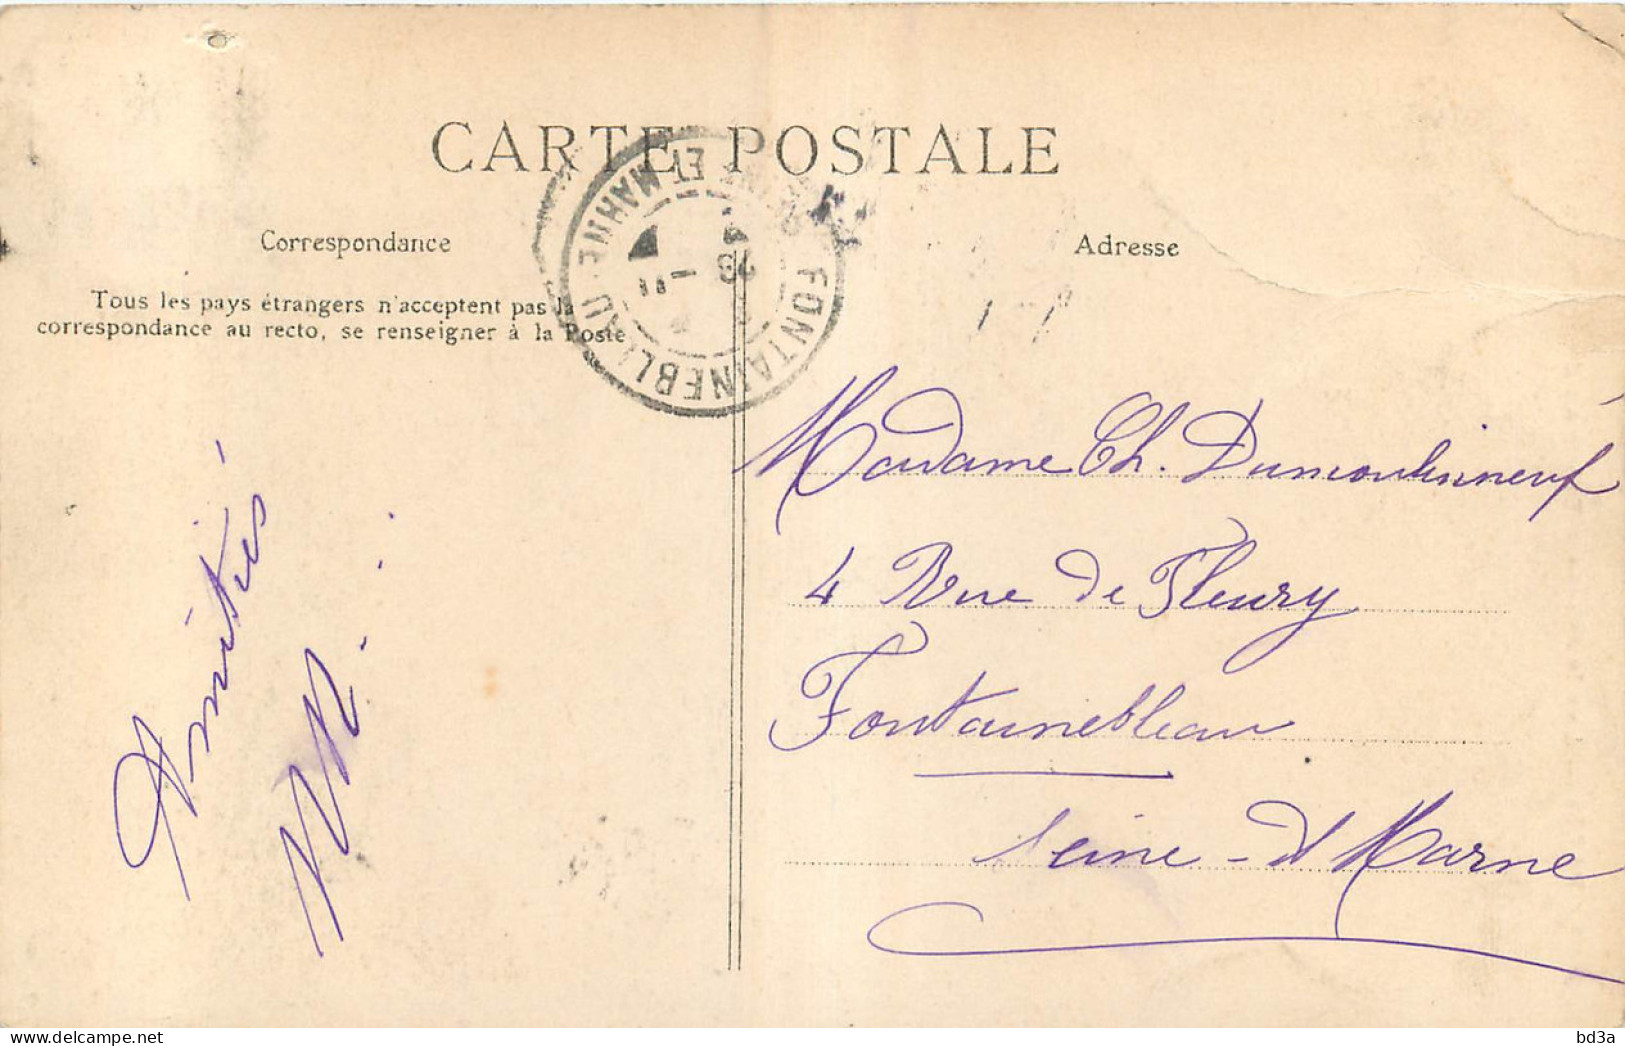 CARTE POSTALE
Correspondance
Adresse
Tous les pays étrangers n'acceptent pas la
correspondance au recto, se renseigner à la Poste
FONTAINEBLEAU
ET MARNE
Amitiés
Madame Ch. Dumoulinneuf
4 Rue de Fleury
Fontainebleau
Seine-et Marne
www.delcampe.net
bd3a